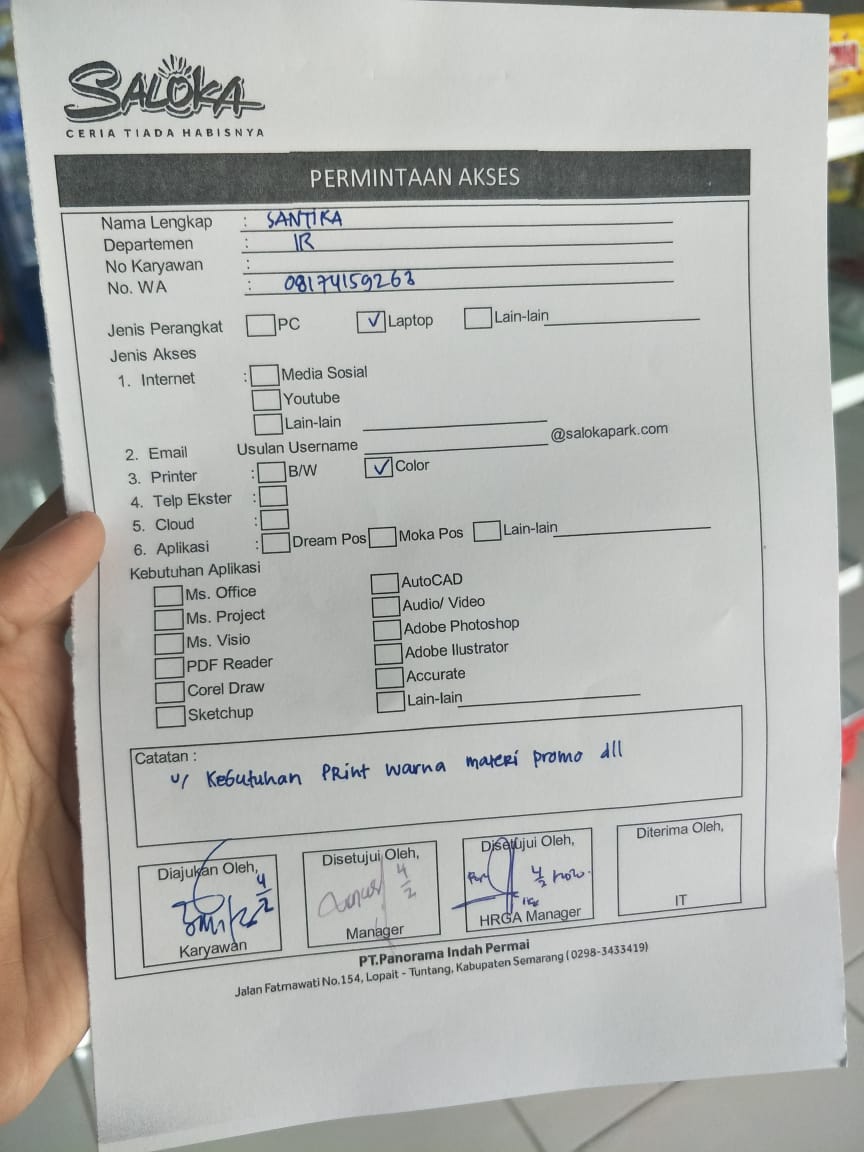 SALOKA
CERIA TIADA HABISNYA
PERMINTAAN AKSES
Nama Lengkap : SANTIKA
Departemen : IR
No Karyawan :
No. WA : 08174159263
Jenis Perangkat PC ✓ Laptop Lain-lain
Jenis Akses
1. Internet : Media Sosial
Youtube
Lain-lain
2. Email Usulan Username @salokapark.com
3. Printer : B/W ✓ Color
4. Telp Ekster :
5. Cloud :
6. Aplikasi : Dream Pos Moka Pos Lain-lain
Kebutuhan Aplikasi
Ms. Office AutoCAD
Ms. Project Audio/ Video
Ms. Visio Adobe Photoshop
PDF Reader Adobe Ilustrator
Corel Draw Accurate
Sketchup Lain-lain
Catatan :
u/ Kebutuhan Print warna materi promo dll
Diajukan Oleh, Disetujui Oleh, Disetujui Oleh, Diterima Oleh,
4/2 4/2 4/2
Karyawan Manager HRGA Manager IT
PT.Panorama Indah Permai
Jalan Fatmawati No.154, Lopait - Tuntang, Kabupaten Semarang (0298-3433419)